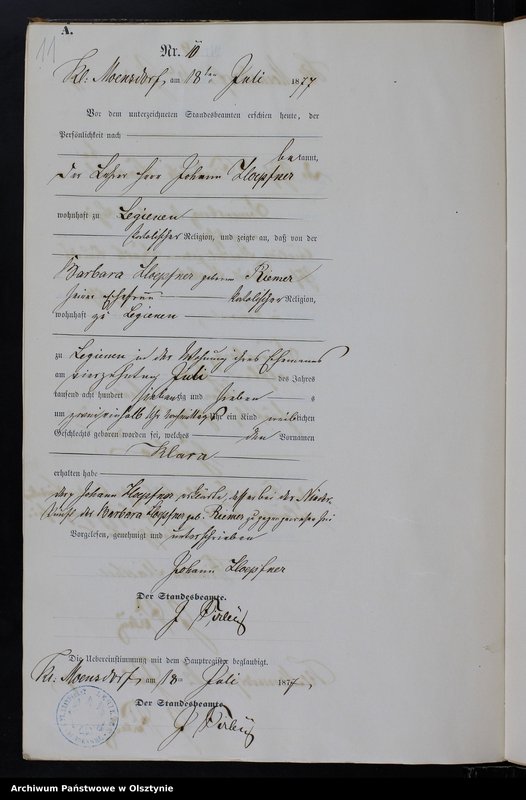 11
A.
Nr. 10
Kl: Moensdorf, am 18ten Juli 1877
Vor dem unterzeichneten Standesbeamten erschien heute, der
Persönlichkeit nach
bekannt,
Der Lehrer Herr Johann Hoepfner
wohnhaft zu Legienen
katolischer Religion, und zeigte an, daß von der
Barbara Hoepfner geborene Riemer
seiner Ehefrau katolischer Religion,
wohnhaft zu Legienen
zu Legienen in der Wohnung ihres Ehemanns
am vierzehnten Juli des Jahres
tausend acht hundert siebenzig und sieben
um Uhr ein Kind weiblichen
Geschlechts geboren worden sei, welches den Vornamen
Klara
erhalten habe
Johann Hoepfner erklärte, daß er bei der Nieder-
kunft der Barbara Hoepfner geb. Riemer zugegen gewesen sei
Vorgelesen, genehmigt und unterschrieben
Johann Hoepfner
Der Standesbeamte.
Die Uebereinstimmung mit dem Hauptregister beglaubigt.
Kl: Moensdorf, am 18ten Juli 1877
Der Standesbeamte
Archiwum Państwowe w Olsztynie